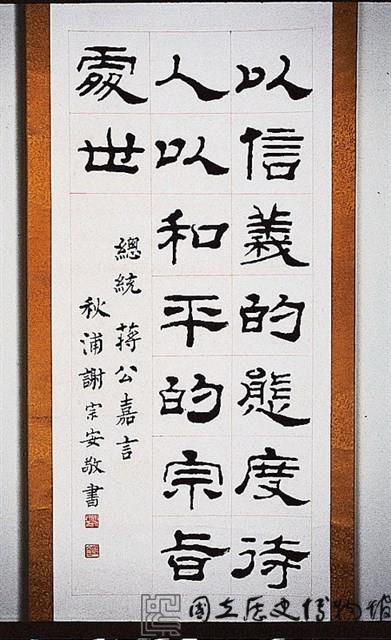 以信義的態度待
人以和平的宗旨
處世
總統 蔣公嘉言
秋浦謝宗安敬書
國立歷史博物館